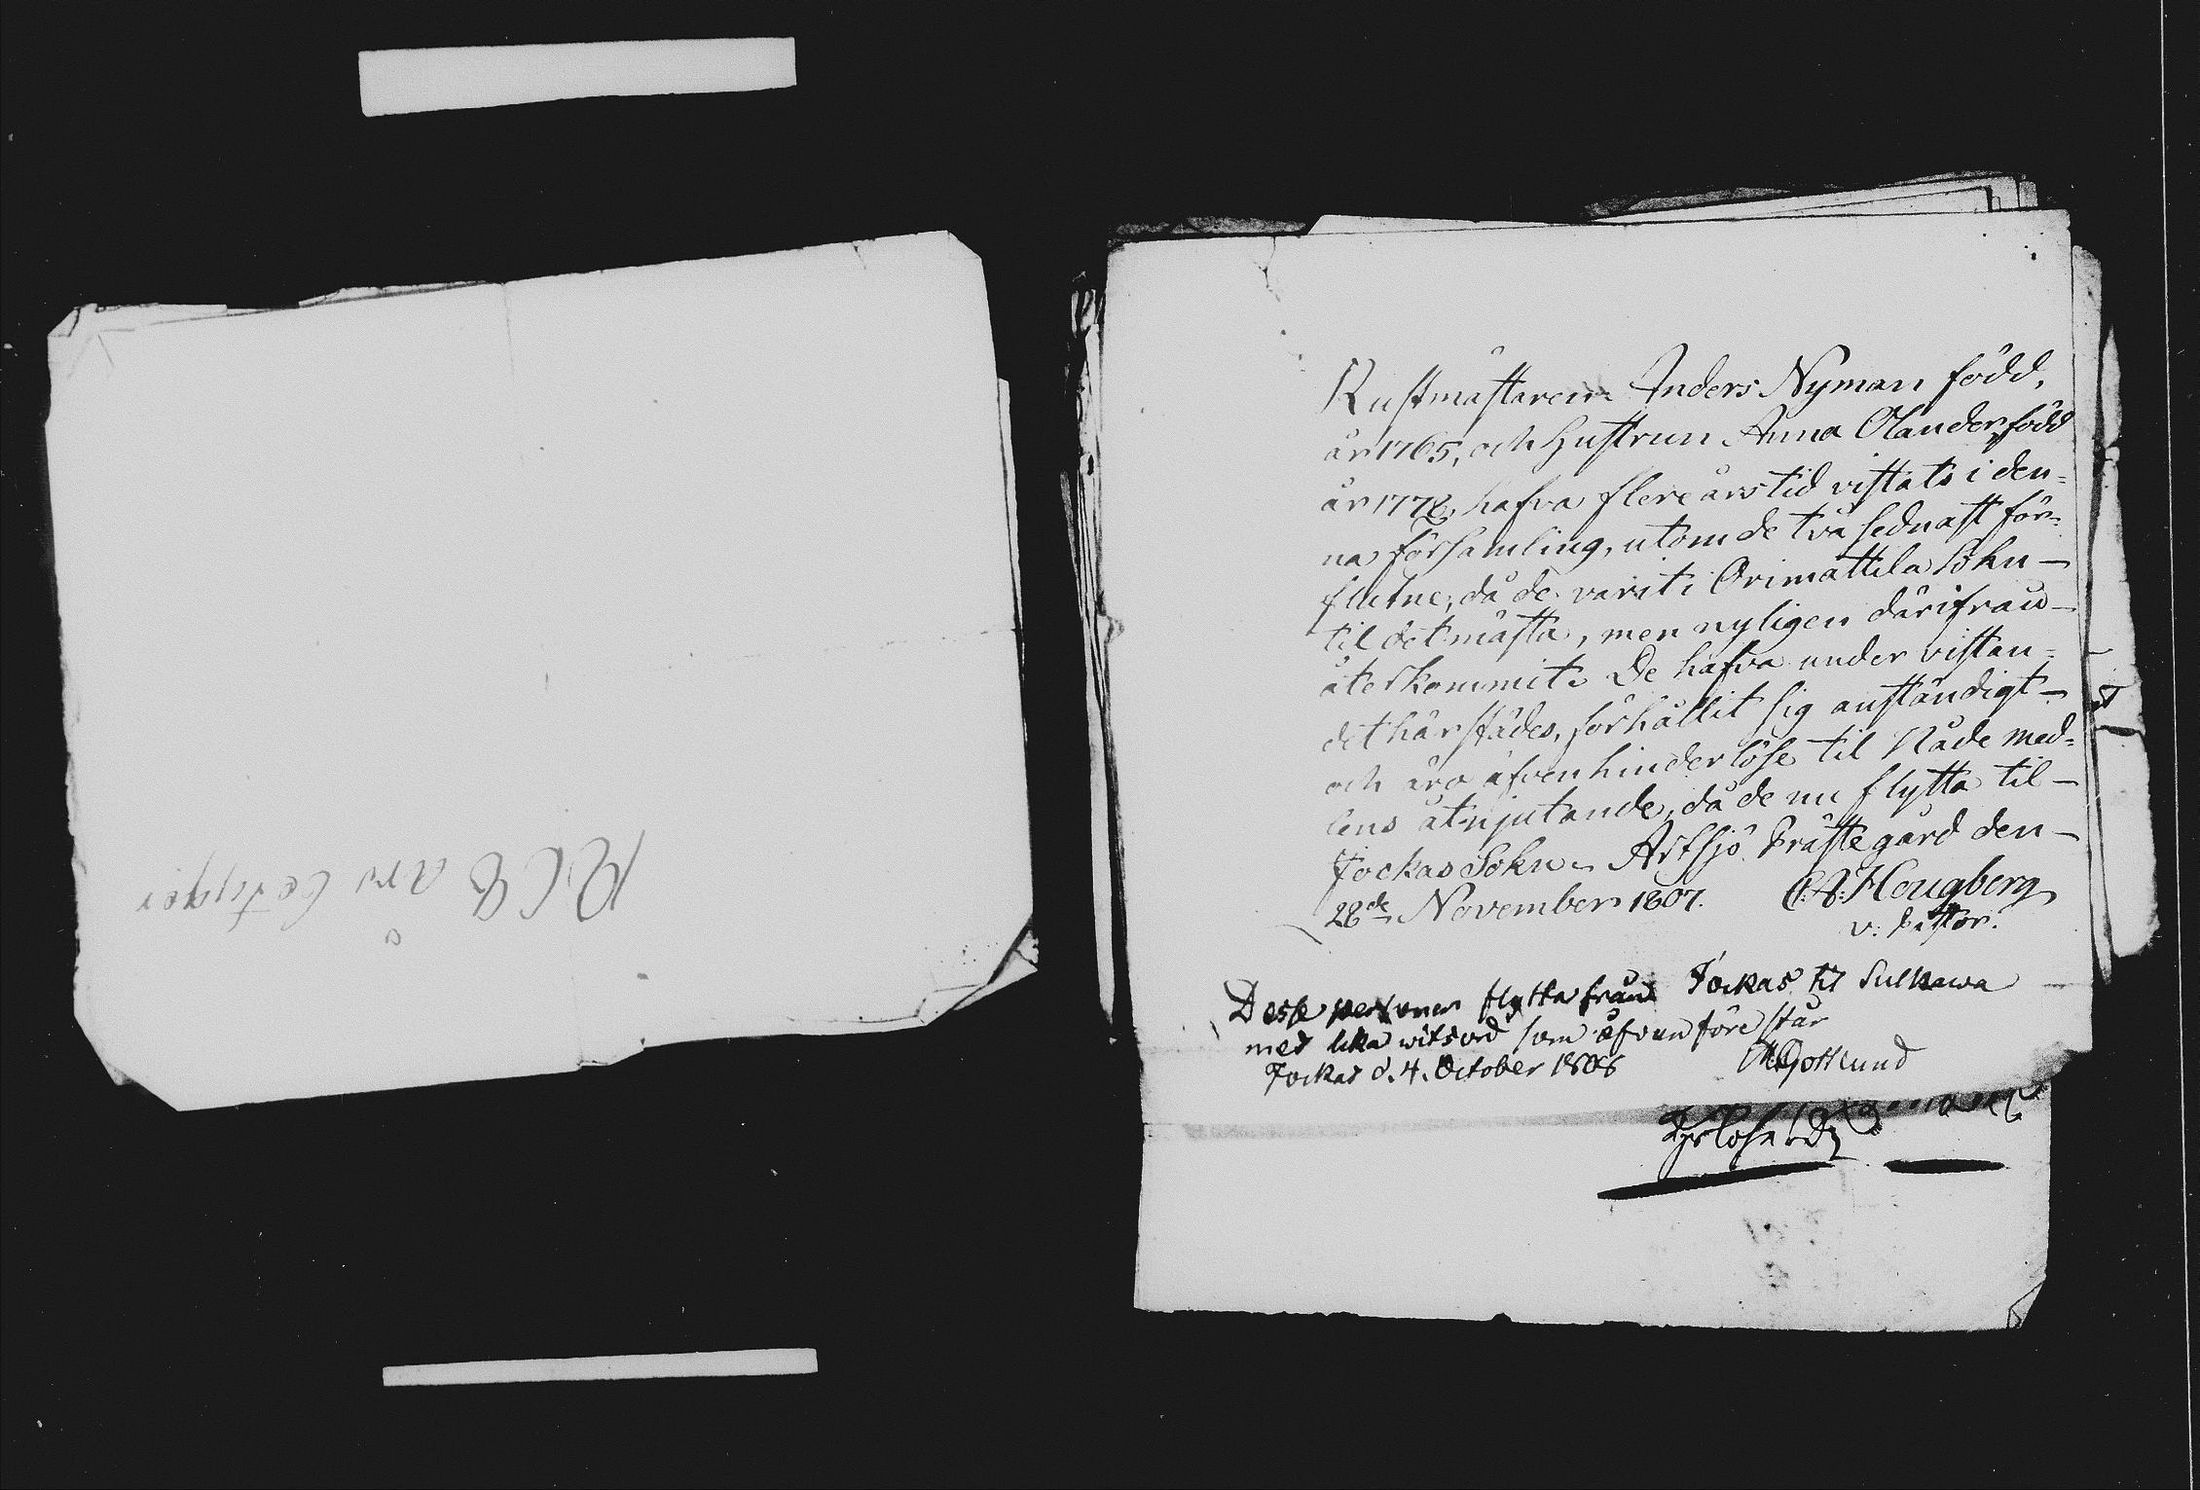 1808 års betyger
Rustmästaren Anders Nyman född,
år 1765, och Hustrun Anna Olander, född
år 1778, hafva flere års tid vistats i den=
na församling, utom de två sednast för=
flutne, då de varit i Orimattila Sokn —
til det mästa, men nyligen därifrån —
återkommit. De hafva under vistan=
det härstädes, förhållit sig anständigt —
och äro äfven hinderlöse til Nåde med=
lens åtnjutande, då de nu flytta til —
Jockas Sokn. Artsjö Prästegård den —
28de November 1807. C.A: Hougberg
v: Pastor.
Desse personer flytta från Jockas til Sulkawa
med lika witsord som åfvanföre står
Jockas d. 4. October 1808 Gottlund